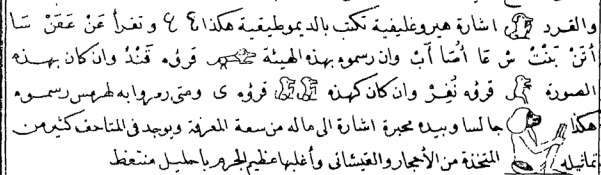 والقرد اشارة هيروغليفية تكتب بالديموطيقية هكذا وتقرأ عَنْ عَقَنْ سَا
أتَنْ بَنْتْ سْ عَا أُسَا أبْ وان رسموه بهذه الهيئة قرؤه قَنْدُ وان كان بهذه
الصورة قرؤه نُفِرْ وان كان كهذه قرؤه ى ومتى رمزوا به لهرمس رسموه
هكذا جالسا وبيده محبرة اشارة الى ماله من سعة المعرفة ويوجد فى المتاحف كثير من
تماثيله المتخذة من الأحجار والقيشانى وأغلبها عظيم الجرم باحليل منتعظ